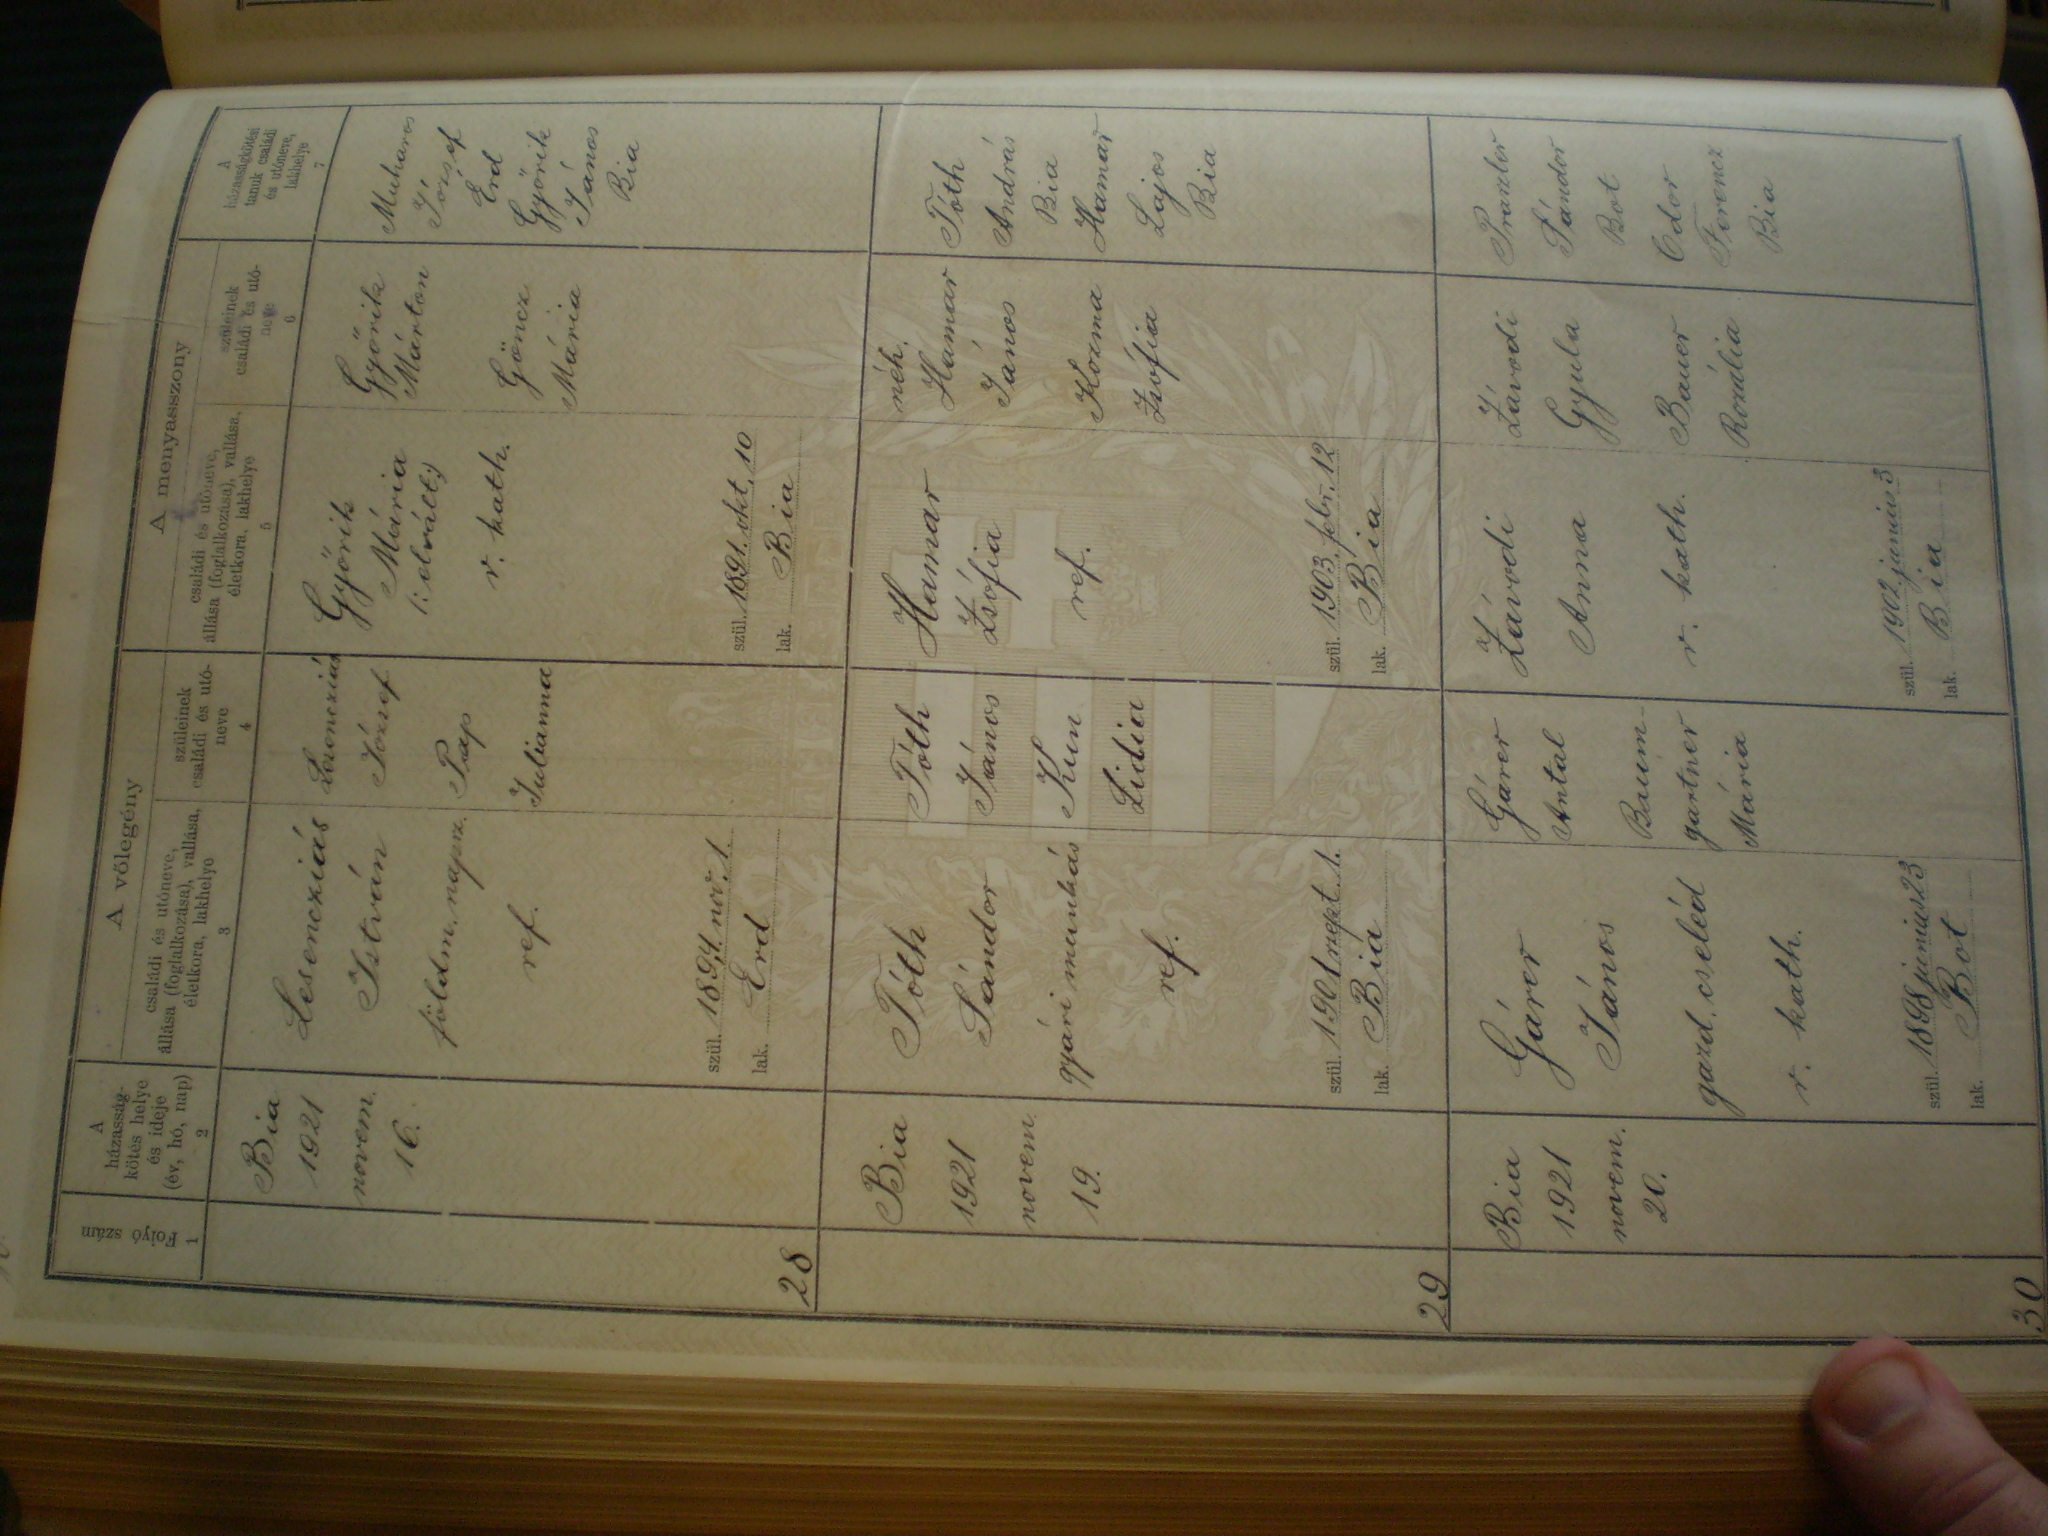 A vőlegény
A menyasszony
Folyó szám
1
A
házasság-
kötés helye
és ideje
(év, hó, nap)
2
családi és utóneve,
állása (foglalkozása), vallása,
életkora, lakhelye
3
szüleinek
családi és utó-
neve
4
családi és utóneve,
állása (foglalkozása), vallása,
életkora, lakhelye
5
szüleinek
családi és utó-
neve
6
A
házasságkötési
tanuk családi
és utóneve,
lakhelye
7
28
Bia
1921
novem.
16.
Lesencziás
István
földm. napsz.
ref.
szül. 1894. nov. 1.
lak. Érd
Lesencziás
József
Pap
Julianna
Győrik
Mária
(: elvált :)
r. kath.
szül. 1891. okt. 10
lak. Bia
Győrik
Márton
Göncz
Mária
Muharos
József
Érd
Győrik
János
Bia
29
Bia
1921
novem.
19.
Tóth
Sándor
gyári munkás
ref.
szül. 1901 szept. 1.
lak. Bia
Tóth
János
Kun
Lidia
Hamar
Zsófia
ref.
szül. 1903. febr. 12
lak. Bia
néh.
Hamar
János
Kozma
Zsófia
Tóth
András
Bia
Hamar
Lajos
Bia
30
Bia
1921
novem.
20.
Gárer
János
gazd. cseléd
r. kath.
szül. 1898 junius 23
lak. Bot
Gárer
Antal
Baum-
gartner
Mária
Závodi
Anna
r. kath.
szül. 1902. junius 3
lak. Bia
Závodi
Gyula
Bauer
Rozália
Sándor
Bot
Odor
Ferencz
Bia